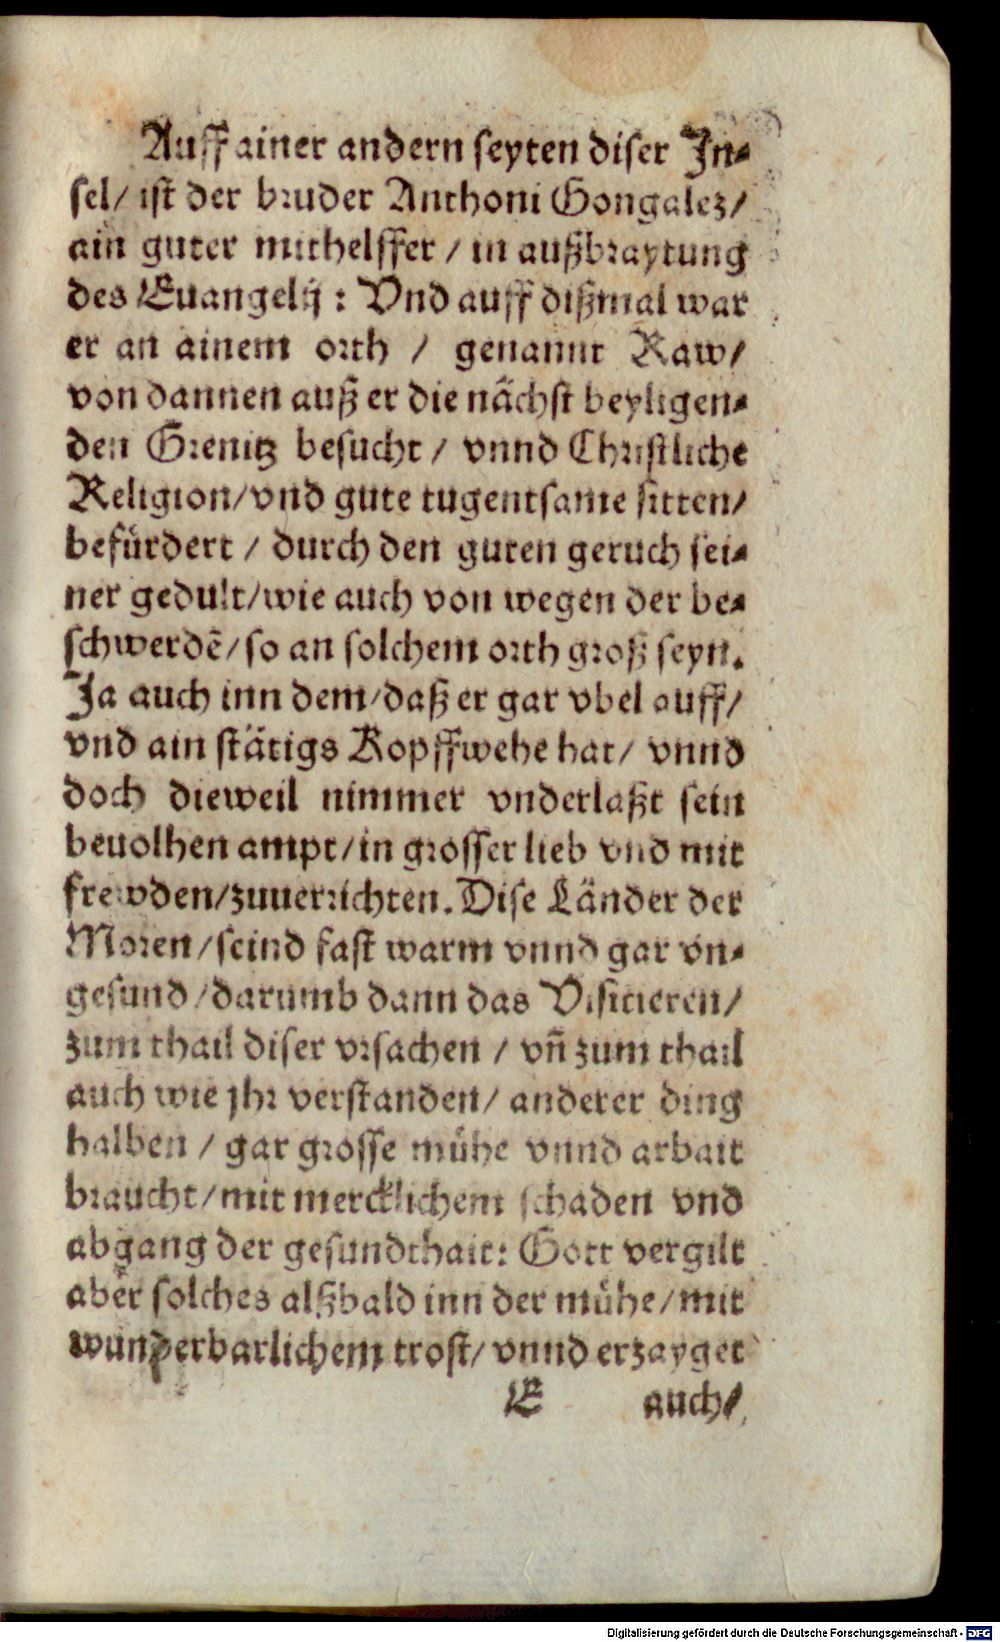 Auff ainer andern seyten diser In-
sel/ ist der bruder Anthoni Gongalez/
ain guter mithelffer / in außbraytung
des Euangelij : Vnd auff dißmal war
er an ainem orth / genannt Raw/
von dannen auß er die nächst beyligen-
den Grenitz besucht / vnnd Christliche
Religion/vnd gute tugentsame sitten/
befürdert / durch den guten geruch sei-
ner gedult/wie auch von wegen der be-
schwerdẽ/so an solchem orth groß seyn.
Ja auch inn dem/daß er gar vbel auff/
vnd ain stätigs Kopffwehe hat/ vnnd
doch dieweil nimmer vnderlaßt sein
beuolhen ampt/in grosser lieb vnd mit
frewden/zuuerrichten. Dise Länder der
Moren/seind fast warm vnnd gar vn-
gesund/darumb dann das Visitieren/
zum thail diser vrsachen / vñ zum thail
auch wie jhr verstanden/ anderer ding
halben / gar grosse mühe vnnd arbait
braucht/mit mercklichem schaden vnd
abgang der gesundthait: Gott vergilt
aber solches alßbald inn der mühe/mit
wunderbarlichem trost/ vnnd erzayget
E auch/
Digitalisierung gefördert durch die Deutsche Forschungsgemeinschaft - DFG